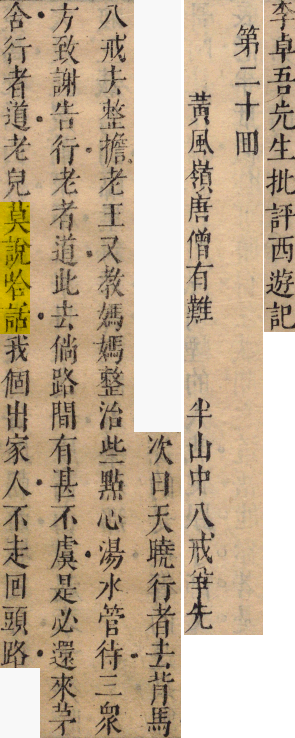 李卓吾先生批評西遊記
第二十回
黃風嶺唐僧有難　半山中八戒爭先
次日天曉行者去背馬
八戒去整擔老王又教媽媽整治些點心湯水管待三眾
方致謝告行老者道此去倘路間有甚不虞是必還來茅
舍行者道老兒莫說哈話我個出家人不走回頭路